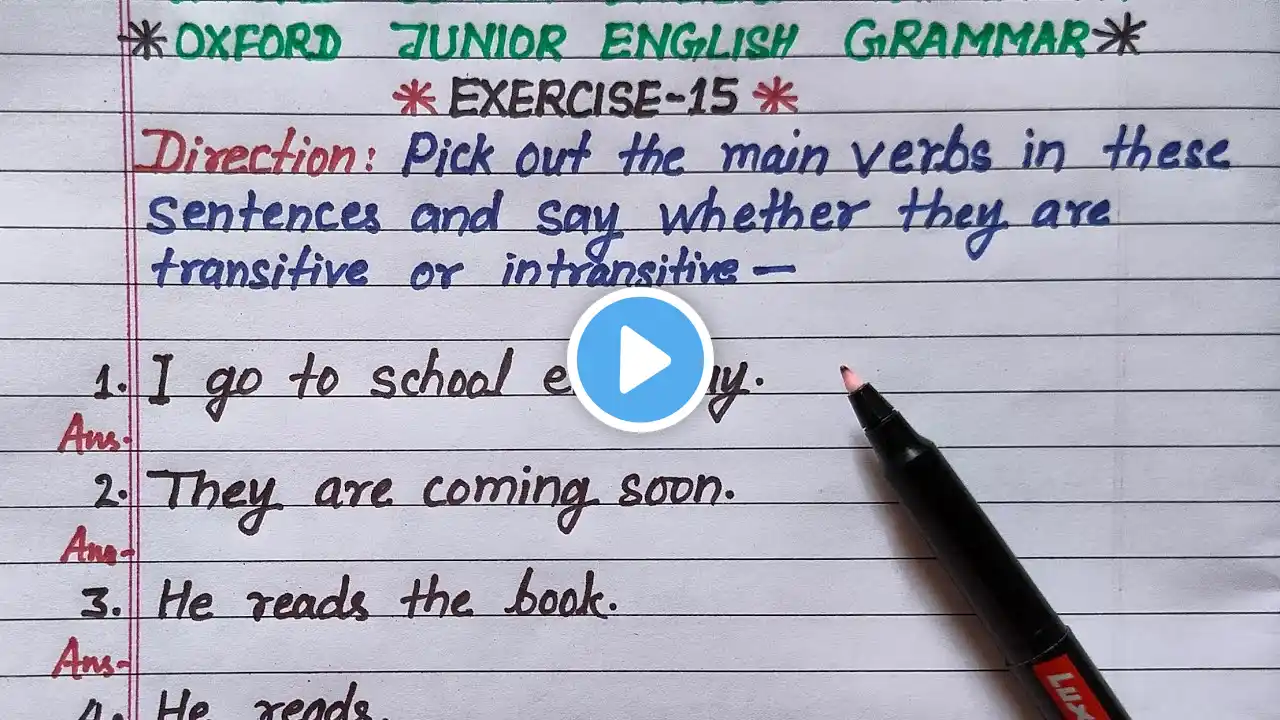 *OXFORD JUNIOR ENGLISH GRAMMAR*
* EXERCISE-15 *
Direction: Pick out the main verbs in these
sentences and say whether they are
transitive or intransitive —
1. I go to school
Ans-
2. They are coming soon.
Ans-
3. He reads the book.
Ans-
4. He reads.
Lux